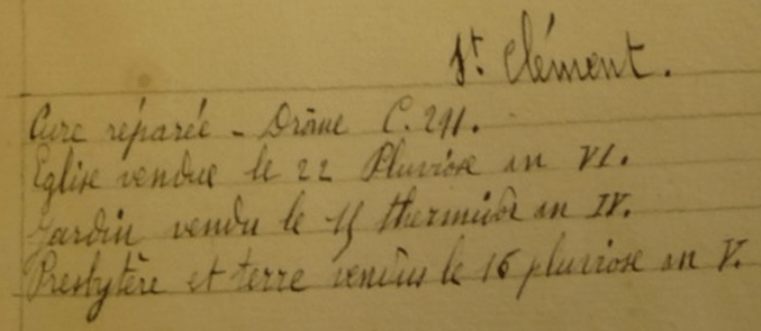 St. Clément.
Cure réparée - Drôme C. 291.
Eglise vendue le 22 Pluviose an VI.
Jardin vendu le 15 thermidor an IV.
Presbytère et terre vendus le 16 pluviose an V.